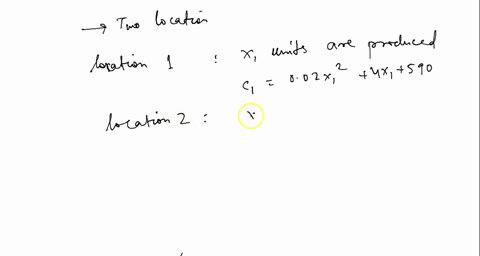 → Two location
location 1 : x₁ units are produced
c₁ = 0.02x₁² + 4x₁ + 590
location 2 : x